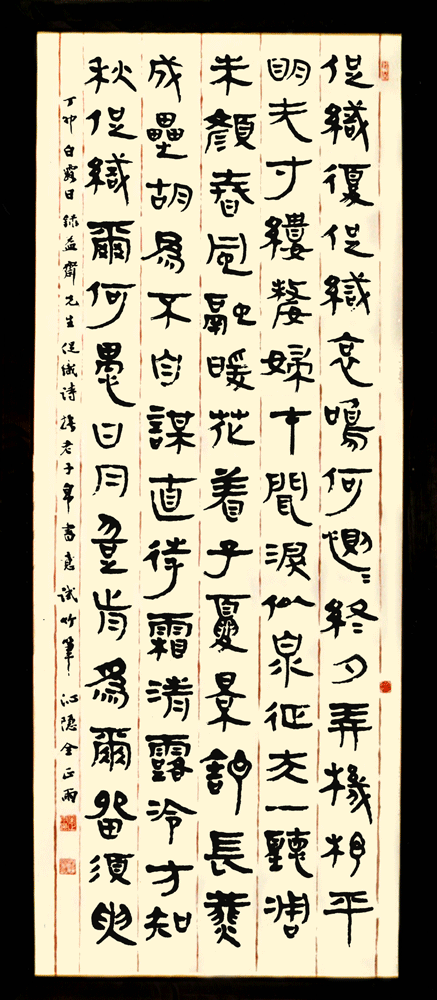 促織復促織哀鳴何惻〻終夕弄機杼平
明无寸縷嫠婦才聞淚似泉征夫一聽凋
朱顔春風融暖花着子夏景舒長鷰
成壘胡爲不自謀直待霜清露冷方知
秋促織爾何愚日月豈肯爲爾留須臾
丁卯白露日錄益齋先生促織詩擬老子帛書意試竹筆沁隱金正雨